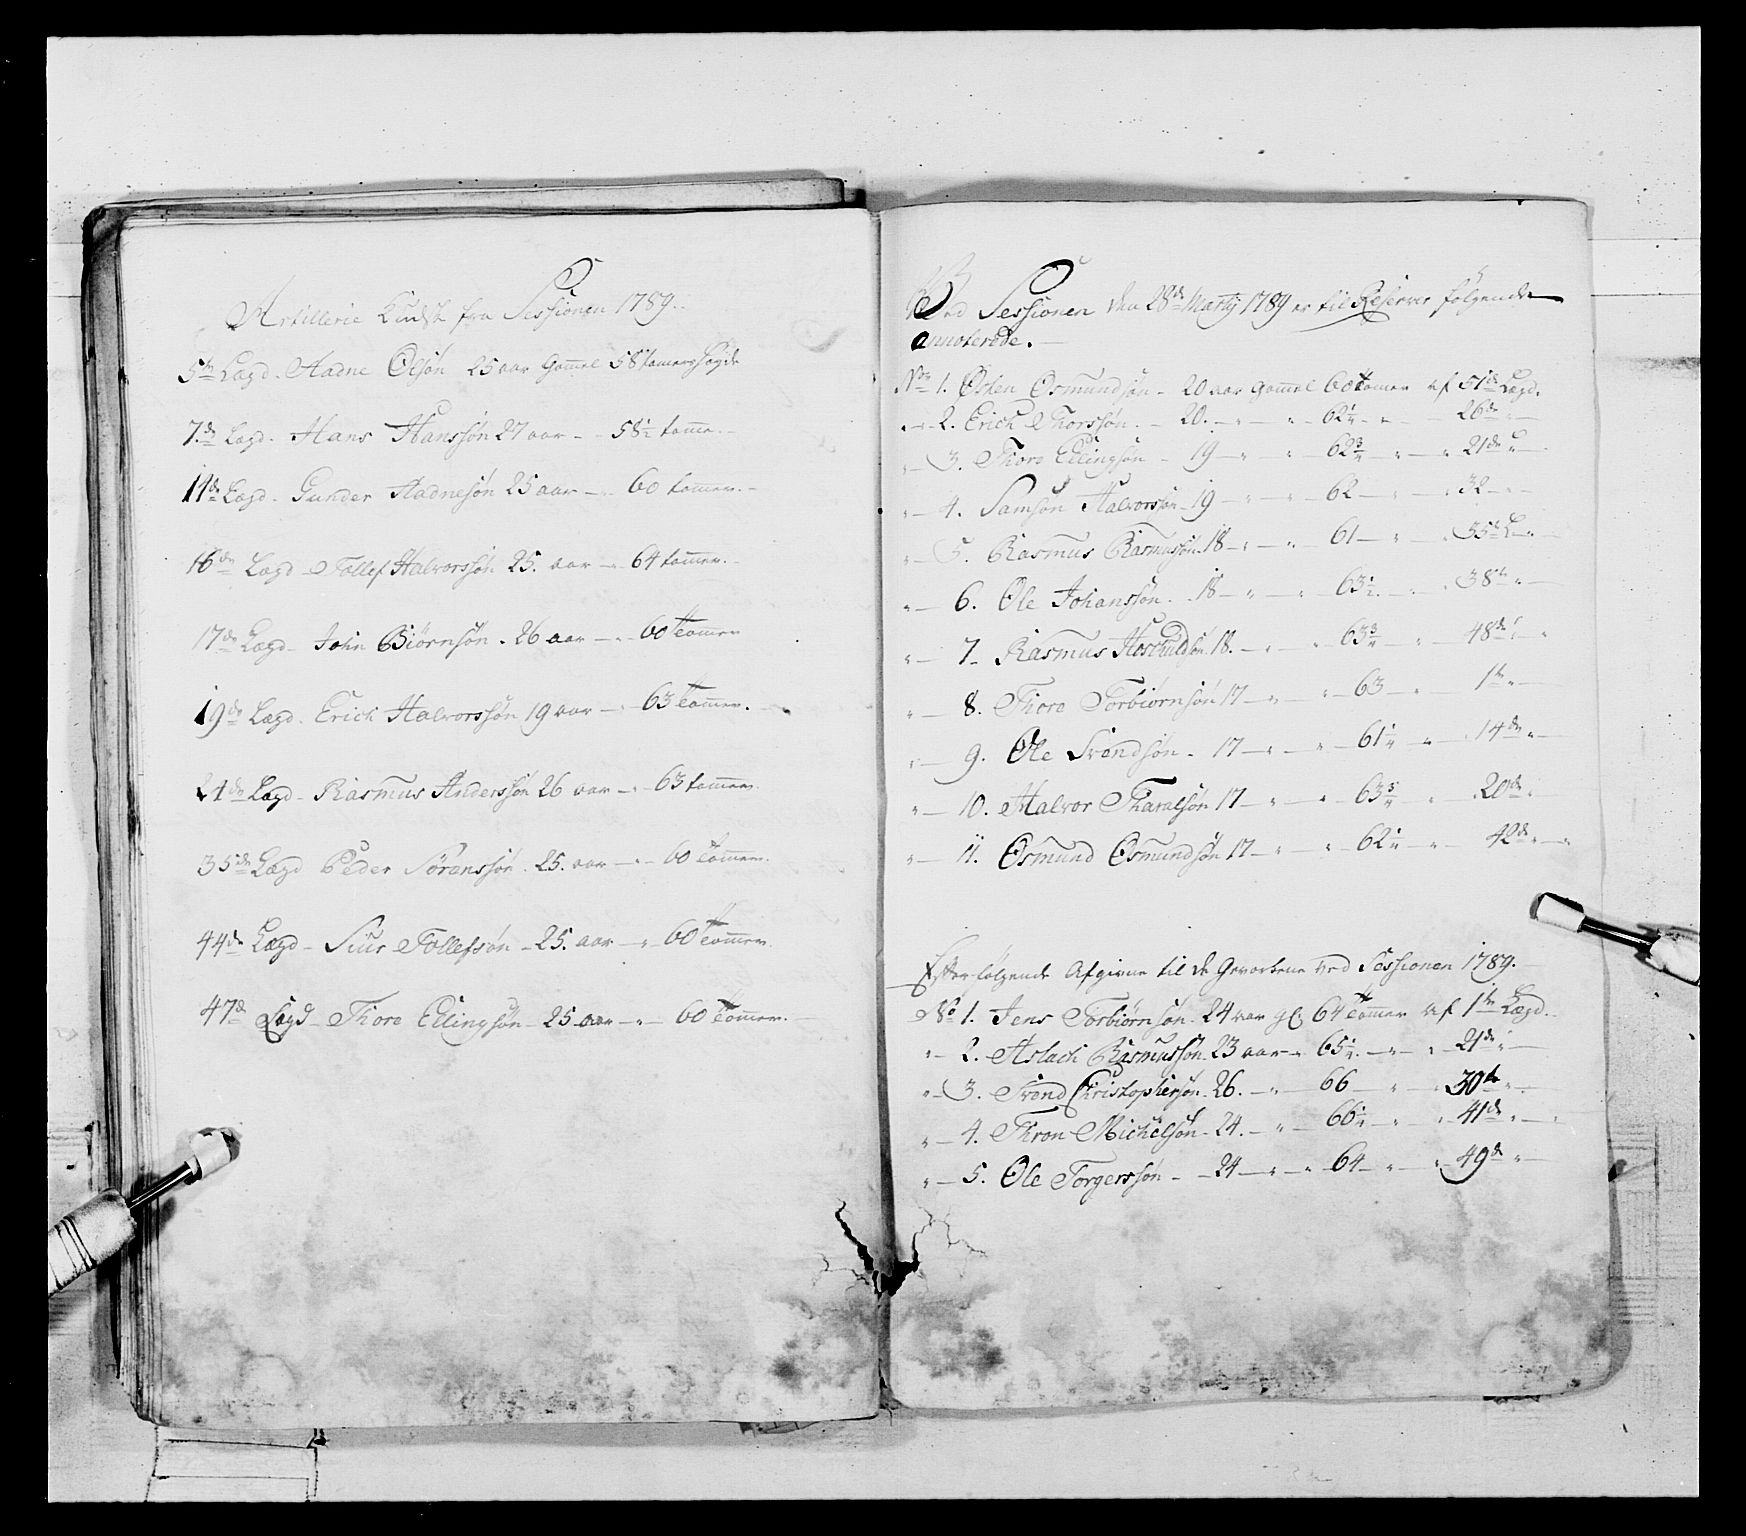 Artillerie Kudsk fra Sessionen 1789.
5te Lægd. Aadne Olsøn 25 aar Gammel 58 tomers Høyde
7de Lægd. Hans Hanssøn 27 aar - - 58½ tomme.
14de Lægd. Gunder Aadnesøn 25 aar - " 60 tommer.
16de Lægd - Tollef Halvorssøn 25. aar - " 64 tommer.
17de Lægd - John Biørnsøn. 26 aar - " 60 Tommer
19de Lægd. Erich Halvorssøn 19 aar - " 63 Tommer.
21de Lægd - Rasmus Anderssøn 26 aar - " 63 tommer.
35de Lægd Peder Sørenssøn. 25. aar - " 60 Tommer.
44de Lægd - Siur Tollefsøn - 25. aar - " 60 Tommer.
47de Lægd - Thore Ellingsøn - 25 aar - " 60 Tommer.
Ved Sessionen den 28de Martij 1789 er til Reserver følgende
annoterede.
No 1. Østen Osmundsøn - 20 aar gammel 60 Tomer af 51de Lægd.
" - 2. Erich Thorssøn. - 20. - " - " 62¼ - " - 26de " -
" - 3. Thore Ellingsøn - 19 - " " 62¾ - " - " 21de " -
" - 4. Samson Halvorssøn - 19 - " - " 62 - " - " 32 - " -
" - 5. Rasmus Rasmussøn. 18 - " - " 61 - " - " 35de L - " -
" - 6. Ole Johanssøn. 18 - " - " 63½ - " - " 38te " -
" - 7 - Rasmus Hoschuldsøn 18. - " - " 63¾ " - 48de " - "
" - 8. Thore Torbiørnsøn 17 - " - " 63 - " - 1te " -
" - 9. Ole Svendsøn - 17 - " - " 61¼ - " - 14de " -
" - 10. Halvor Tharalsøn 17 - " - " 63¾ - " - 20de "
" - 11. Osmund Osmundsøn 17 - " - " 62¼ - " - 42de " - "
Efterfølgende Afgivne til de Gevorbene ved Sessionen 1789.
No 1. Jens Torbiørnsøn. 24 aar gl. 64 Tommer af 1te Lægd.
" - 2. Aslach Rasmussøn. 23 aar - " 65¼ - " - " 21de " -
" - 3. Svend Christophersøn. 26. - " - 66 - " - " 30te " -
" - 4. Thron Michelsøn - 24. - " - 66¼ - " - " 41de " -
" - 5. Ole Torgerssøn - - 24 - " - " 64 - " - " 49de " -